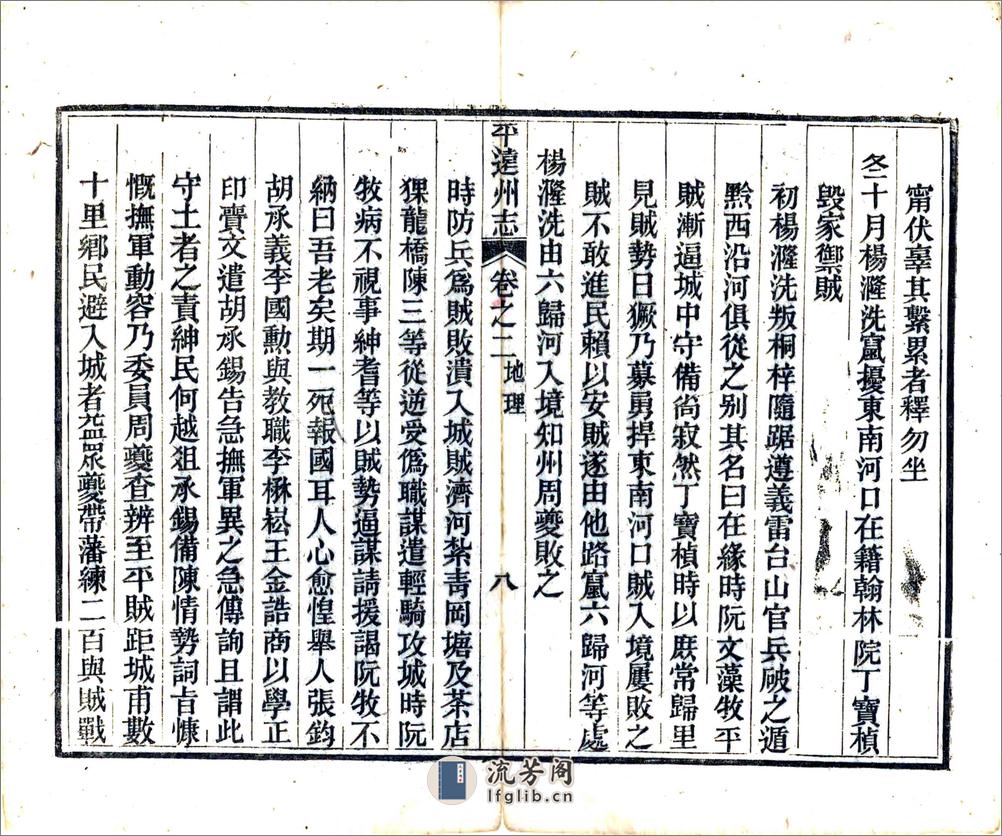 甯伏辜其繫累者釋勿坐
冬十月楊漋洗竄擾東南河口在籍翰林院丁寶楨
毀家禦賊
初楊漋洗叛桐梓隨踞遵義雷台山官兵破之遁
黔西沿河俱從之别其名曰在緣時阮文藻牧平
賊漸逼城中守備尚寂然丁寶楨時以庶常歸里
見賊勢日獗乃募勇捍東南河口賊入境屢敗之
賊不敢進民賴以安賊遂由他路竄六歸河等處
楊漋洗由六歸河入境知州周夔敗之
平遠州志
卷之二
地理
八
時防兵爲賊敗潰入城賊濟河紮靑岡塘及茶店
猓龍橋陳三等從逆受僞職謀遣輕騎攻城時阮
牧病不視事紳耆等以賊勢逼謀請援謁阮牧不
納曰吾老矣期一死報國耳人心愈惶舉人張鈞
胡承義李國勲與教職李楙崧王金誥商以學正
印賫文遣胡承錫告急撫軍異之急傳詢且謂此
守土者之責紳民何越爼承錫備陳情勢詞旨慷
慨撫軍動容乃委員周夔查辨至平賊距城甫數
十里鄉民避入城者益眾夔帶藩練二百與賊戰
流芳阁
lfglib.cn